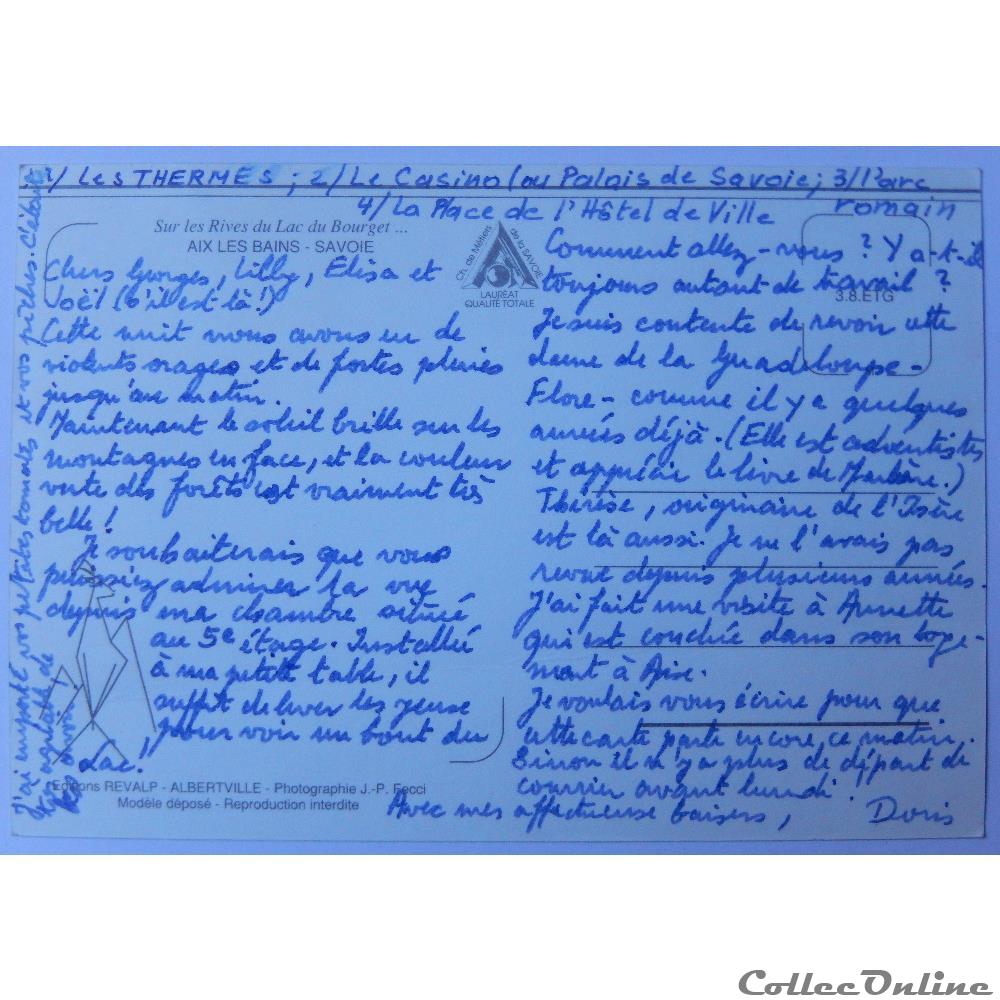 1/ Les THERMES ; 2/ Le Casino (ou Palais de Savoie ; 3/ l'arc
romain
4/ La Place de l'Hôtel de Ville
Sur les Rives du Lac du Bourget ...
AIX LES BAINS - SAVOIE
Ch. de Métiers de la SAVOIE
LAURÉAT
QUALITÉ TOTALE
3.8.ETG
Chers Georges, Lilly, Elisa et
Joël (s'il est là !)
Cette nuit nous avons eu de
violents orages et de fortes pluies
jusqu'au matin.
Maintenant le soleil brille sur les
montagnes en face, et la couleur
verte des forêts est vraiment très
belle !
Je souhaiterais que vous
puissiez admirer la vue
depuis ma chambre située
au 5e étage. Installée
à ma petite table, il
suffit de lever les yeux
pour voir un bout du
Lac !
Comment allez-vous ? Y a-t-il
toujours autant de travail ?
Je suis contente de revoir cette
dame de la Guadeloupe -
Flore - comme il y a quelques
années déjà. (Elle est adventiste
et apprécie le livre de Marlène.)
Thérèse, originaire de l'Isère
est là aussi. Je ne l'avais pas
revue depuis plusieurs années.
J'ai fait une visite à Annette
qui est couchée dans son loge-
ment à Aix.
Je voulais vous écrire pour que
cette carte parte encore ce matin.
Sinon il n'y a plus de départ de
courrier avant lundi.
Avec mes affectueuse baisers, Doris
J'ai emporté vos petites tomates et vos pêches. C'était
agréable de
Editions REVALP - ALBERTVILLE - Photographie J.-P. Fecci
Modèle déposé - Reproduction interdite
CollecOnline